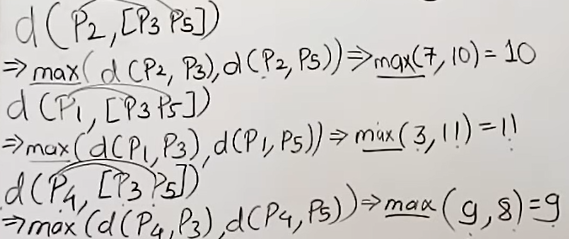 d(P2,[P3 P5])
⇒max(d(P2,P3),d(P2,P5))⇒max(7,10)=10
d(P1,[P3P5])
⇒max(d(P1,P3),d(P1,P5))⇒max(3,11)=11
d(P4,[P3P5])
⇒max(d(P4,P3),d(P4,P5))⇒max(9,8)=9